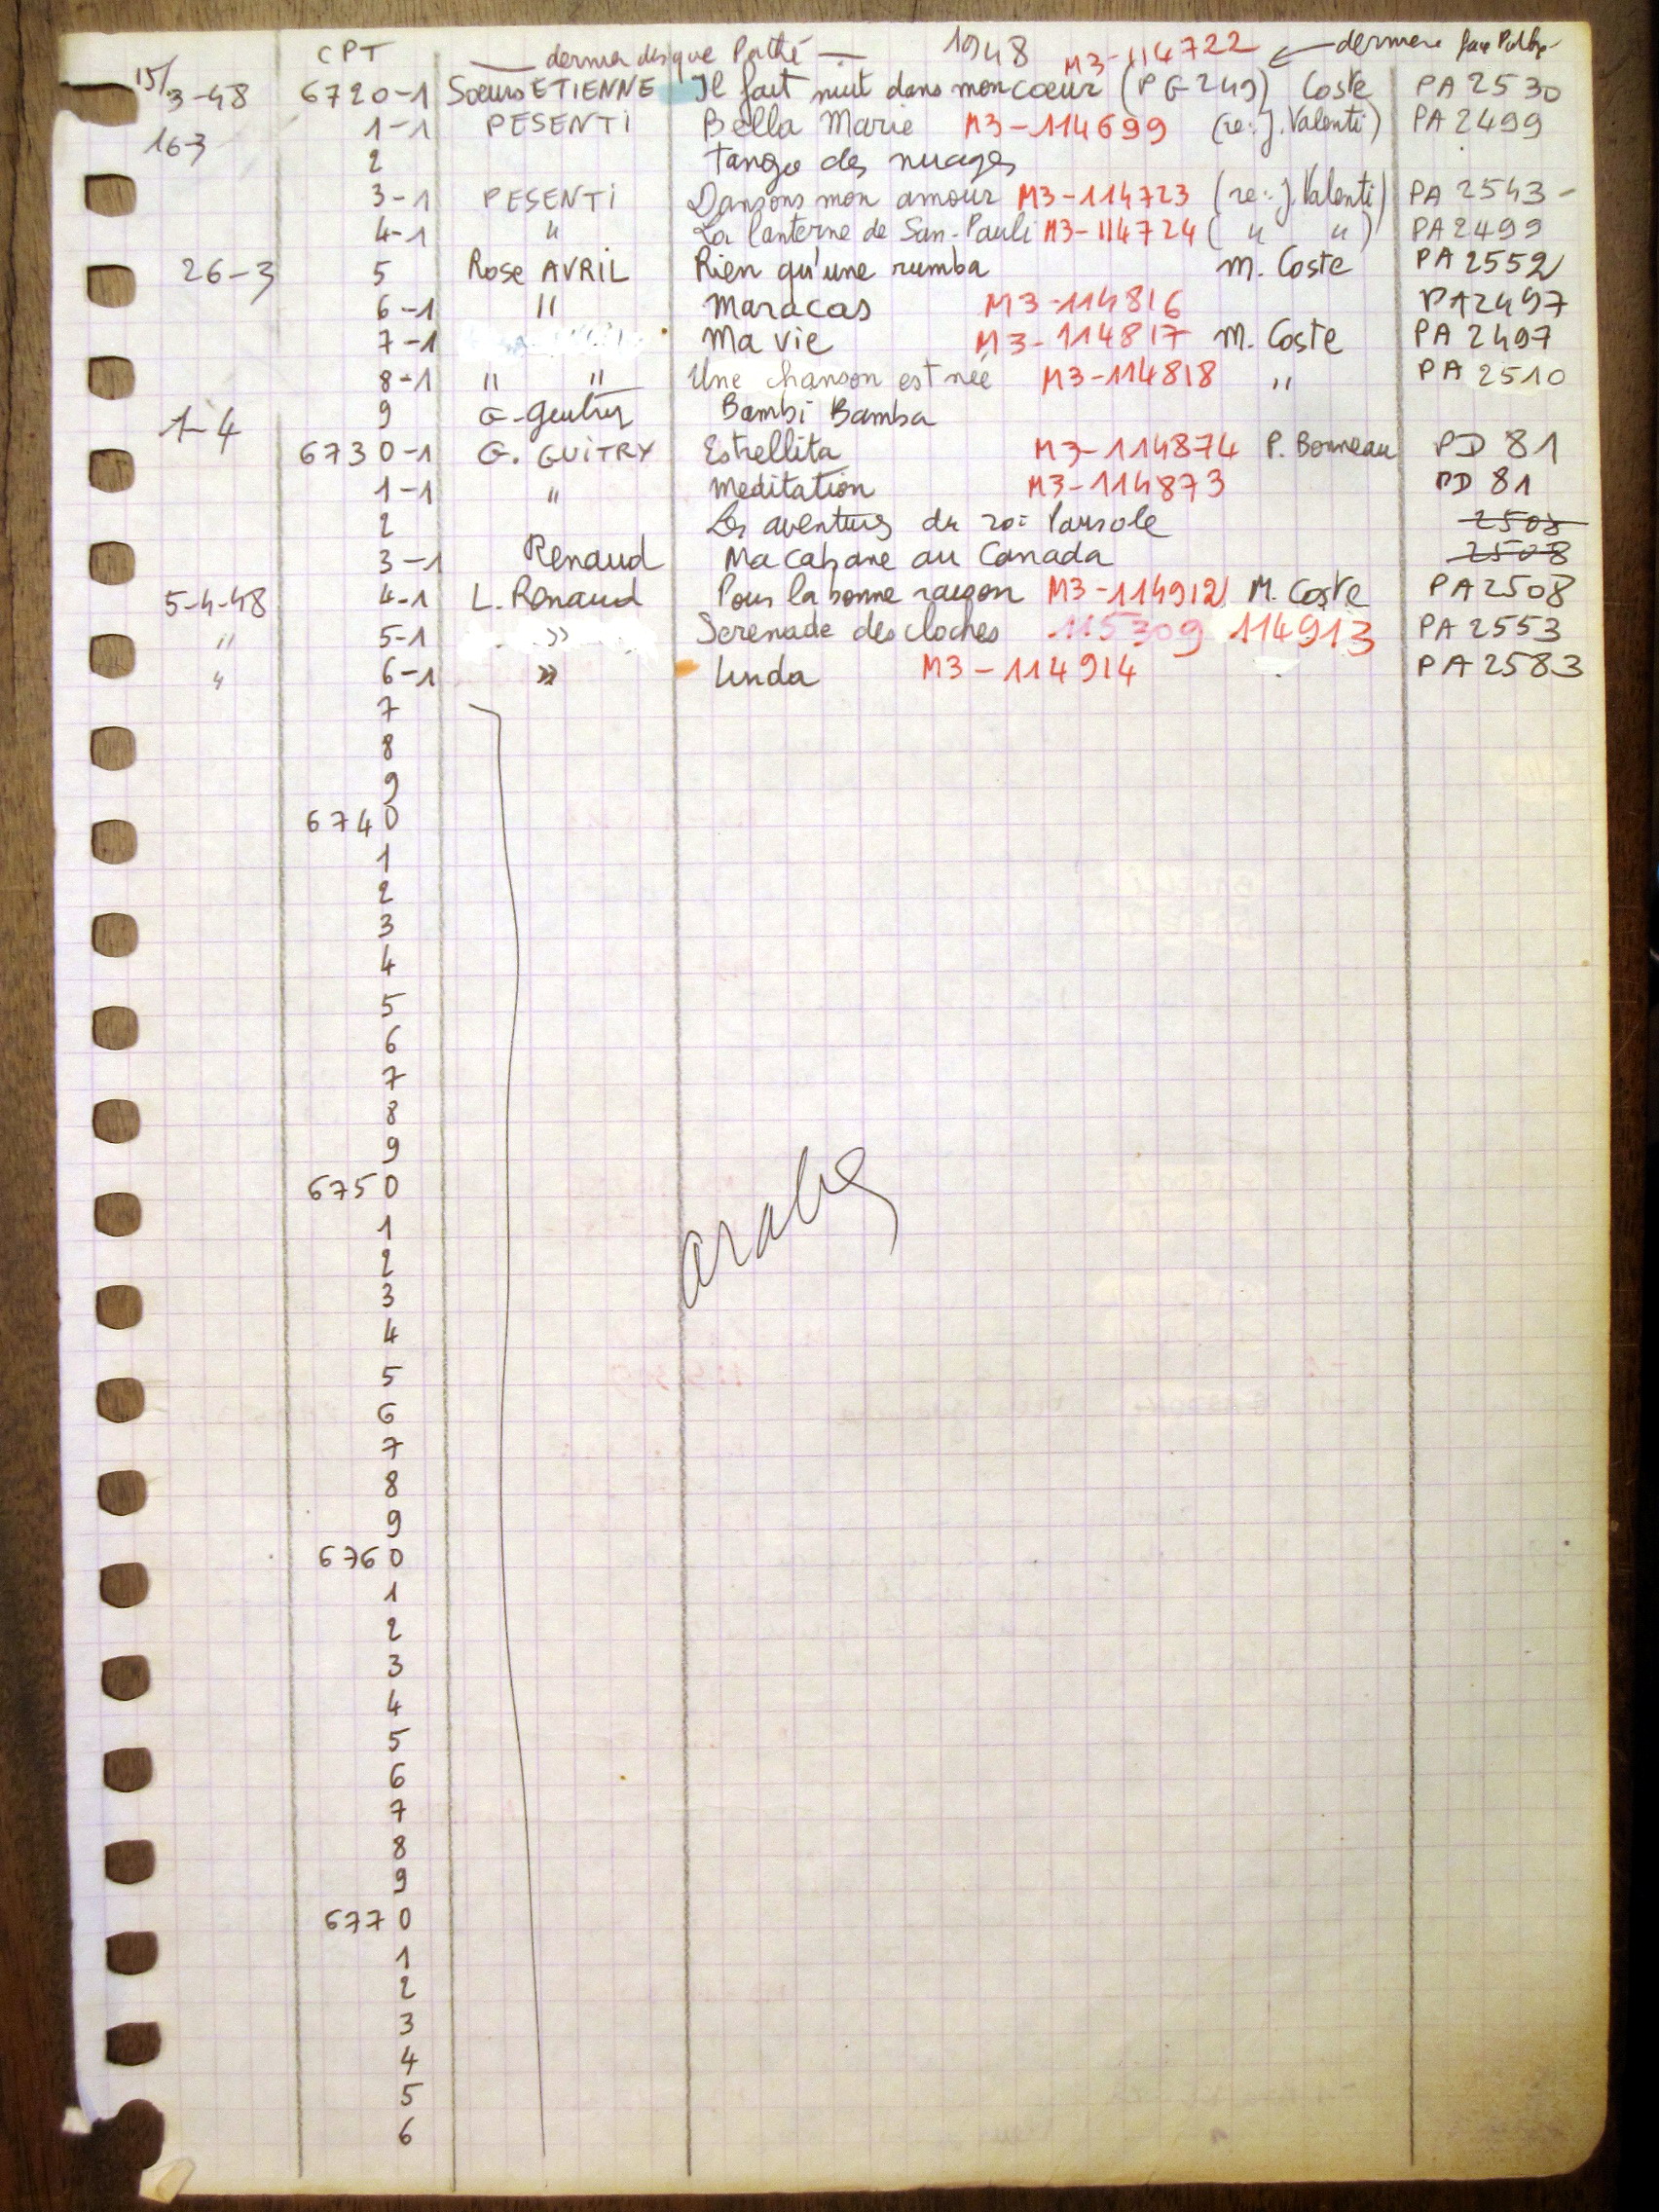 CPT — dernier disque Pathé — 1948 M3-114722 ← dernière face Pathé
15/3-48 6720-1 Soeurs ETIENNE Il fait nuit dans mon coeur (PG 249) Coste PA 2530
16-3 1-1 PESENTI Bella Marie M3-114699 (re: J. Valenti) PA 2499
2 Tango des nuages
3-1 PESENTI Dansons mon amour M3-114723 (re: J. Valenti) PA 2543-
4-1 " La lanterne de San-Pauli M3-114724 ( " " ) PA 2499
26-3 5 Rose AVRIL Rien qu'une rumba M. Coste PA 2552
6-1 " Maracas M3-114816 PA 2497
7-1 Ma vie M3-114817 M. Coste PA 2497
8-1 " " Une chanson est née M3-114818 " PA 2510
1-4 9 G. Guitry Bambi Bamba
6730-1 G. GUITRY Estrellita M3-114874 P. Bonneau PD 81
1-1 " Meditation M3-114873 PD 81
2 Les aventures du roi Pausole 2508
3-1 Renaud Ma cabane au Canada 2508
5-4-48 4-1 L. Renaud Pour la bonne raison M3-114912 M. Coste PA 2508
" 5-1 » Serenade des cloches 115309 114913 PA 2553
" 6-1 » Linda M3-114914 PA 2583
7
8
9
6740
1
2
3
4
5
6
7
8
9
6750
arabe
1
2
3
4
5
6
7
8
9
6760
1
2
3
4
5
6
7
8
9
6770
1
2
3
4
5
6